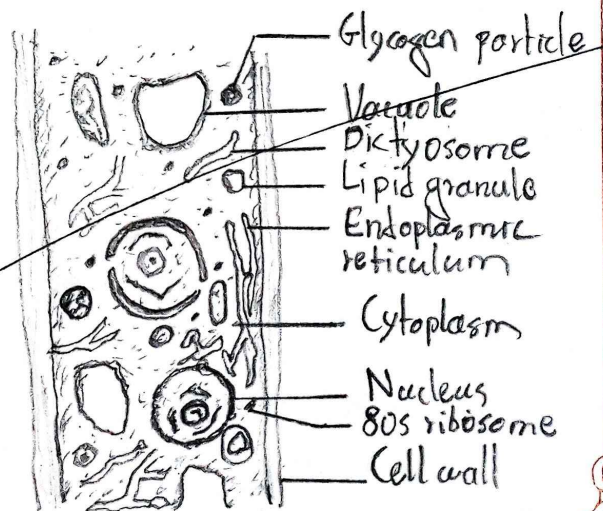 Glycogen particle
Vacuole
Dictyosome
Lipid granule
Endoplasmic
reticulum
Cytoplasm
Nucleus
80s ribosome
Cell wall